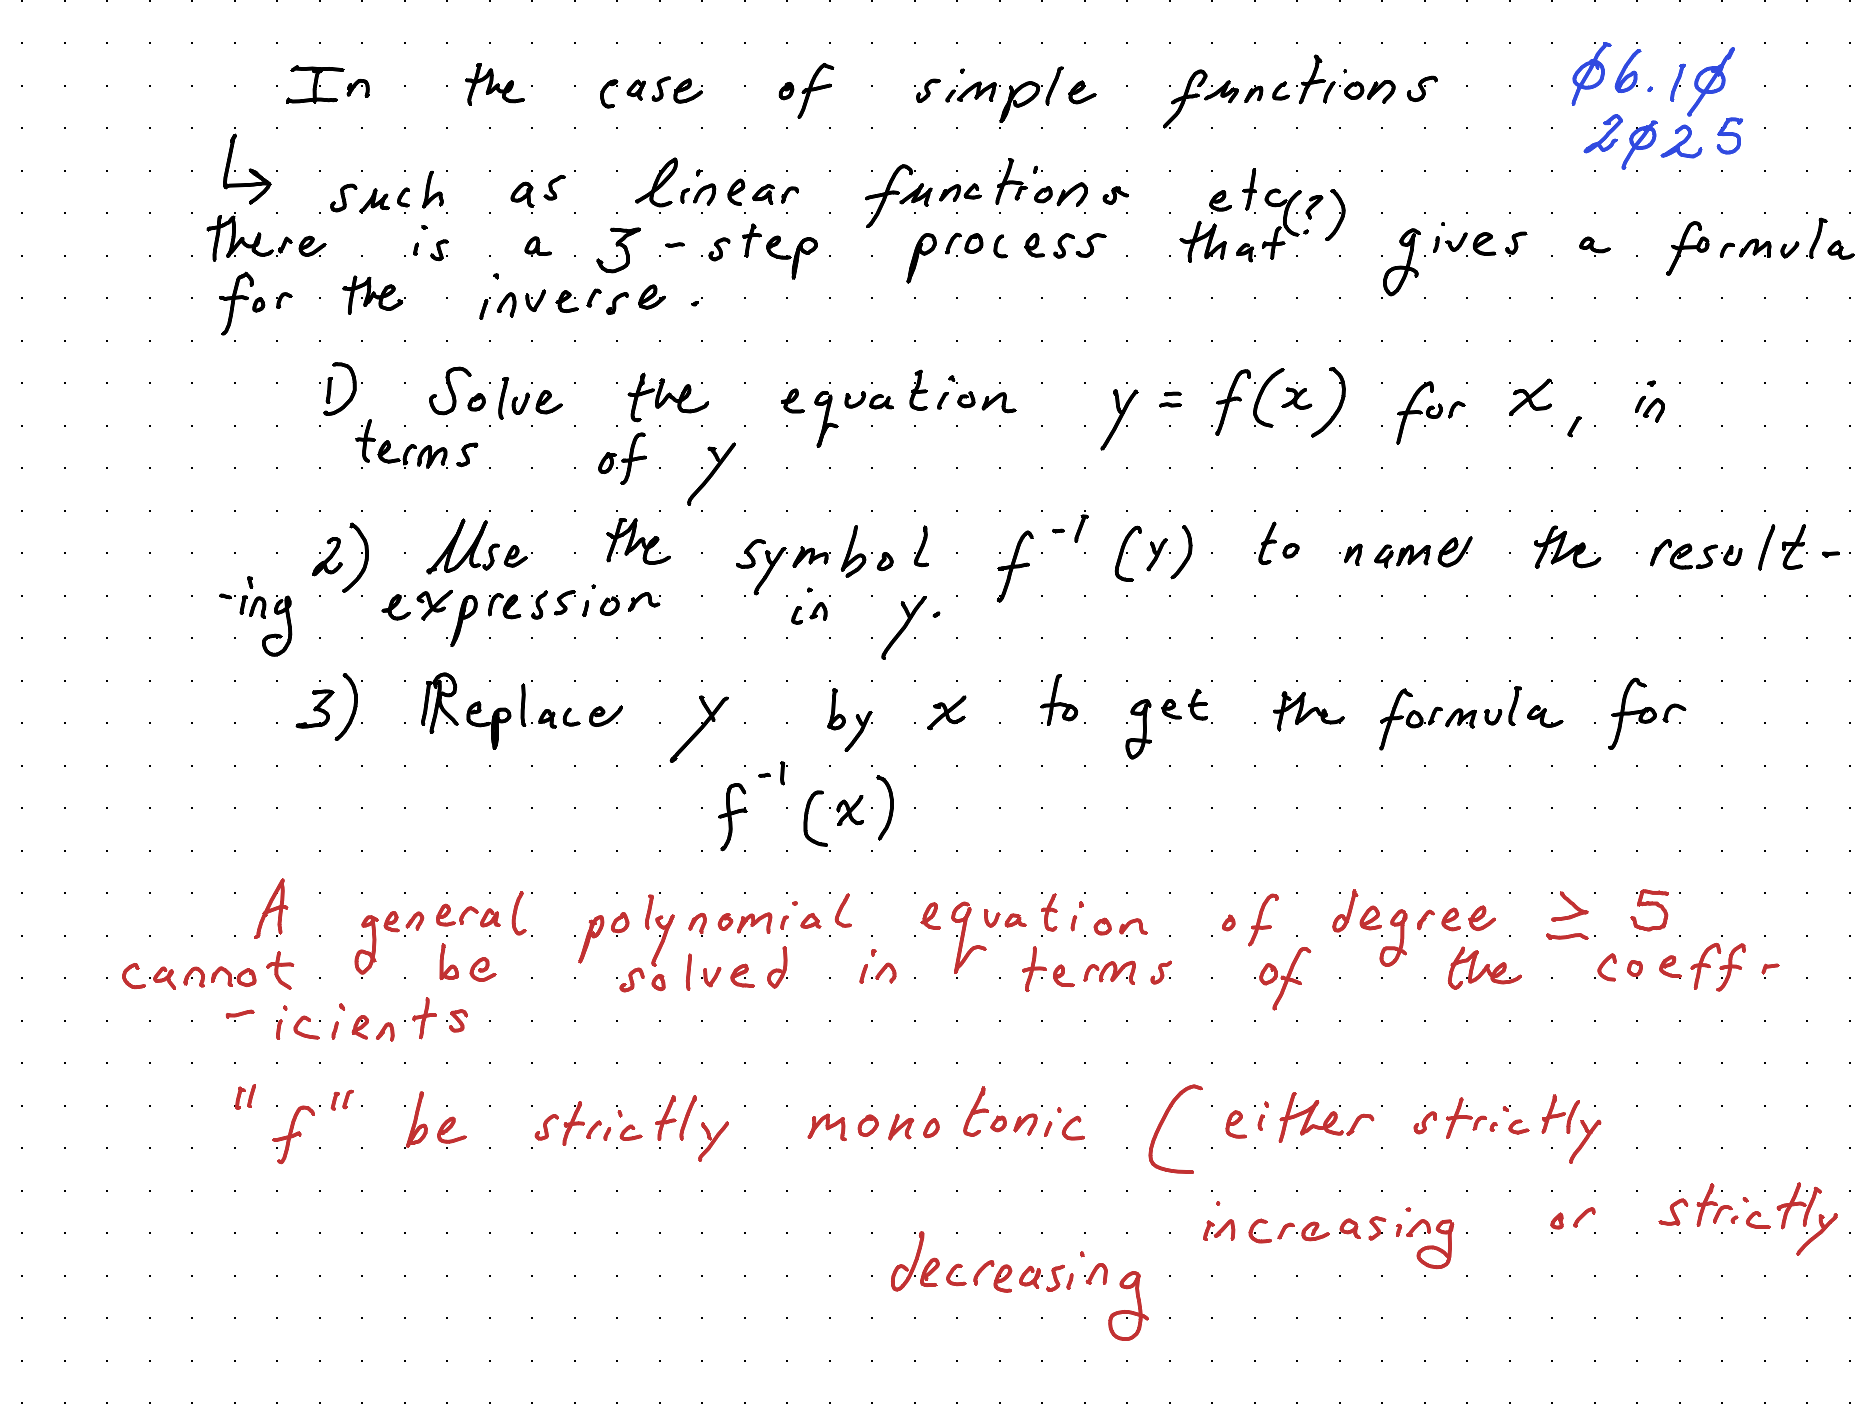 In the case of simple functions
06.10
2025
↳ such as linear functions etc(?)
there is a 3-step process that gives a formula
for the inverse.
1) Solve the equation y = f(x) for x, in
terms of y
2) Use the symbol f⁻¹(y) to name the result-
-ing expression in y.
3) Replace y by x to get the formula for
f⁻¹(x)
A general polynomial equation of degree ≥ 5
cannot be solved in terms of the coeff-
-icients
"f" be strictly monotonic (either strictly
increasing or strictly
decreasing